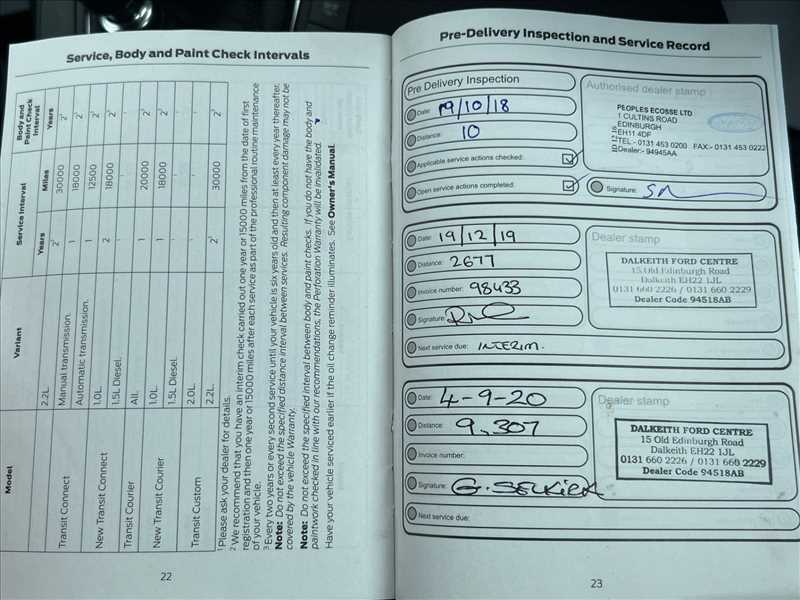 Service, Body and Paint Check Intervals
Model
Variant
Service Interval
Body and
Paint Check
Interval
Years
Miles
Years
2.2L.
Transit Connect
Manual transmission.
2¹
30000
2³
Automatic transmission.
1
18000
2³
New Transit Connect
1.0L.
1
12500
2³
1.5L Diesel.
2
18000
2³
Transit Courier
All.
New Transit Courier
1.0L.
1
20000
2³
1.5L Diesel.
1
18000
2³
Transit Custom
2.0L.
2.2L.
2¹
30000
2³
¹ Please ask your dealer for details.
² We recommend that you have an interim check carried out one year or 15000 miles from the date of first
registration and then one year or 15000 miles after each service as part of the professional routine maintenance
of your vehicle.
³ Every two years or every second service until your vehicle is six years old and then at least every year thereafter.
Note: Do not exceed the specified distance interval between services. Resulting component damage may not be
covered by the vehicle Warranty.
Note: Do not exceed the specified interval between body and paint checks. If you do not have the body and
paintwork checked in line with our recommendations, the Perforation Warranty will be invalidated.
Have your vehicle serviced earlier if the oil change reminder illuminates. See Owner's Manual.
22
Pre-Delivery Inspection and Service Record
Pre Delivery Inspection
Date: 19/10/18
Distance: 10
Applicable service actions checked:
Open service actions completed:
Authorised dealer stamp
PEOPLES ECOSSE LTD
1 CULTINS ROAD
EDINBURGH
EH11 4DF
TEL:- 0131 453 0200 FAX:- 0131 453 0222
Dealer:- 94945AA
Signature:
Date: 19/12/19
Distance: 2677
Invoice number: 98433
Signature:
Next service due: INTERIM.
Dealer stamp
DALKEITH FORD CENTRE
15 Old Edinburgh Road
Dalkeith EH22 1JL
0131 660 2226 / 0131 660 2229
Dealer Code 94518AB
Date: 4-9-20
Distance: 9,307
Invoice number:
Signature: G. SELKIRK
Next service due:
Dealer stamp
DALKEITH FORD CENTRE
15 Old Edinburgh Road
Dalkeith EH22 1JL
0131 660 2226 / 0131 660 2229
Dealer Code 94518AB
23